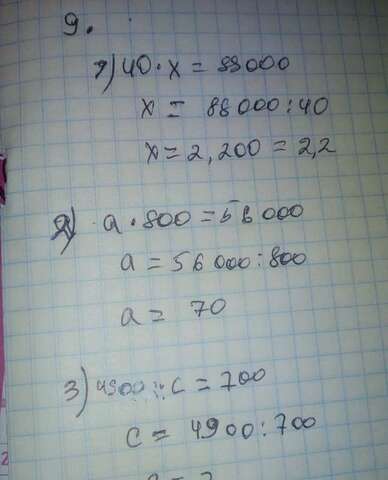 9.
1) 40 · x = 88000
x = 88000 : 40
x = 2,200 = 2,2
2) a · 800 = 56000
a = 56000 : 800
a = 70
3) 4900 : c = 700
c = 4900 : 700